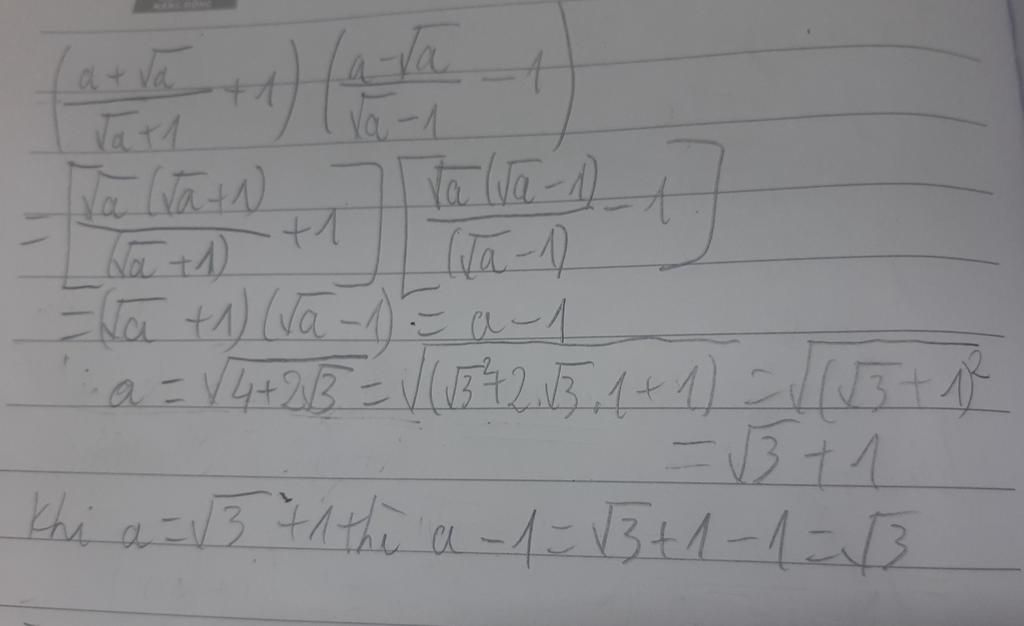 (a+√a/√a+1 + 1) (a-√a/√a-1 - 1)
= [√a(√a+1)/(√a+1) + 1] [√a(√a-1)/(√a-1) - 1]
= (√a + 1) (√a - 1) = a - 1
a = √(4+2√3) = √((√3²+2.√3.1+1) = √((√3+1)²
= √3 + 1
Khi a = √3 + 1 thì a - 1 = √3 + 1 - 1 = √3